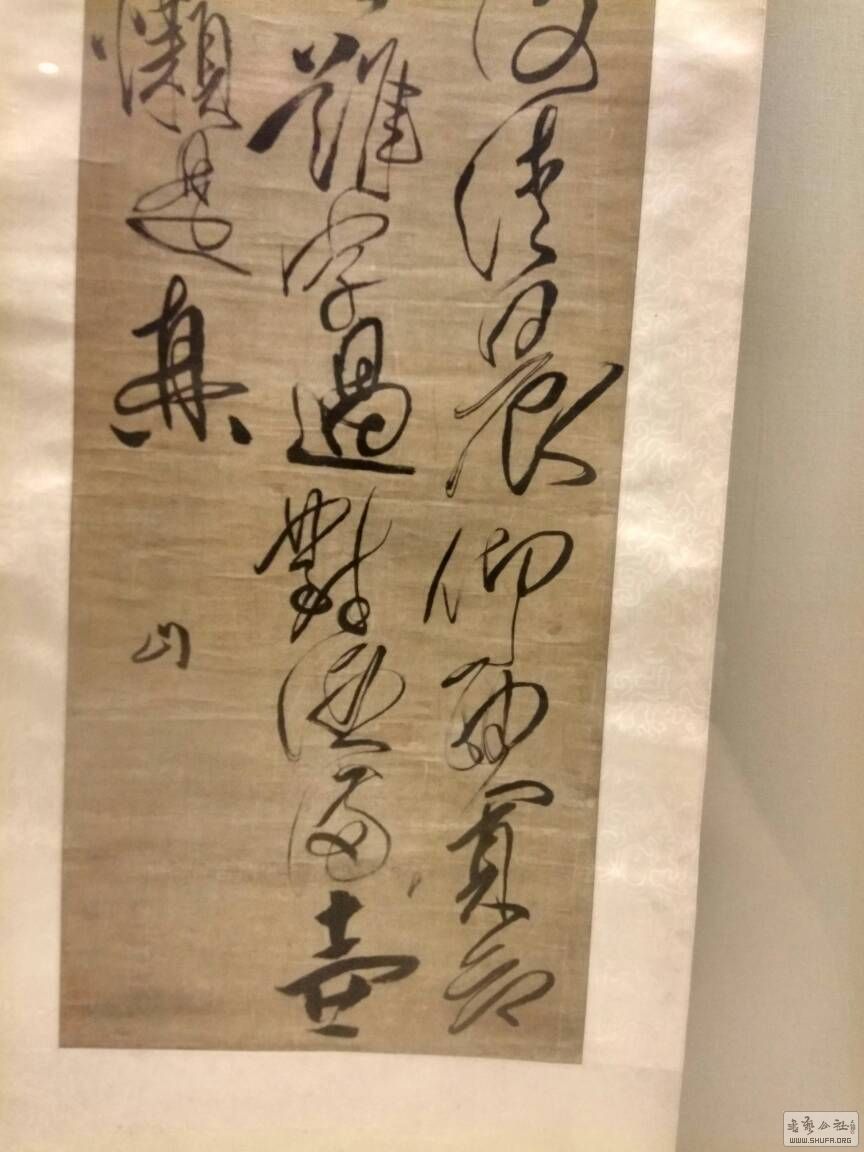 清晨仰面貪看
難字過對酒滿壺
懶是真
山
書藝公社
WWW.SHUFA.ORG